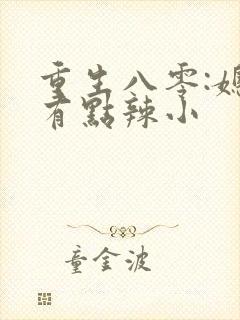 重生八零:媳
有點辣小
童金波